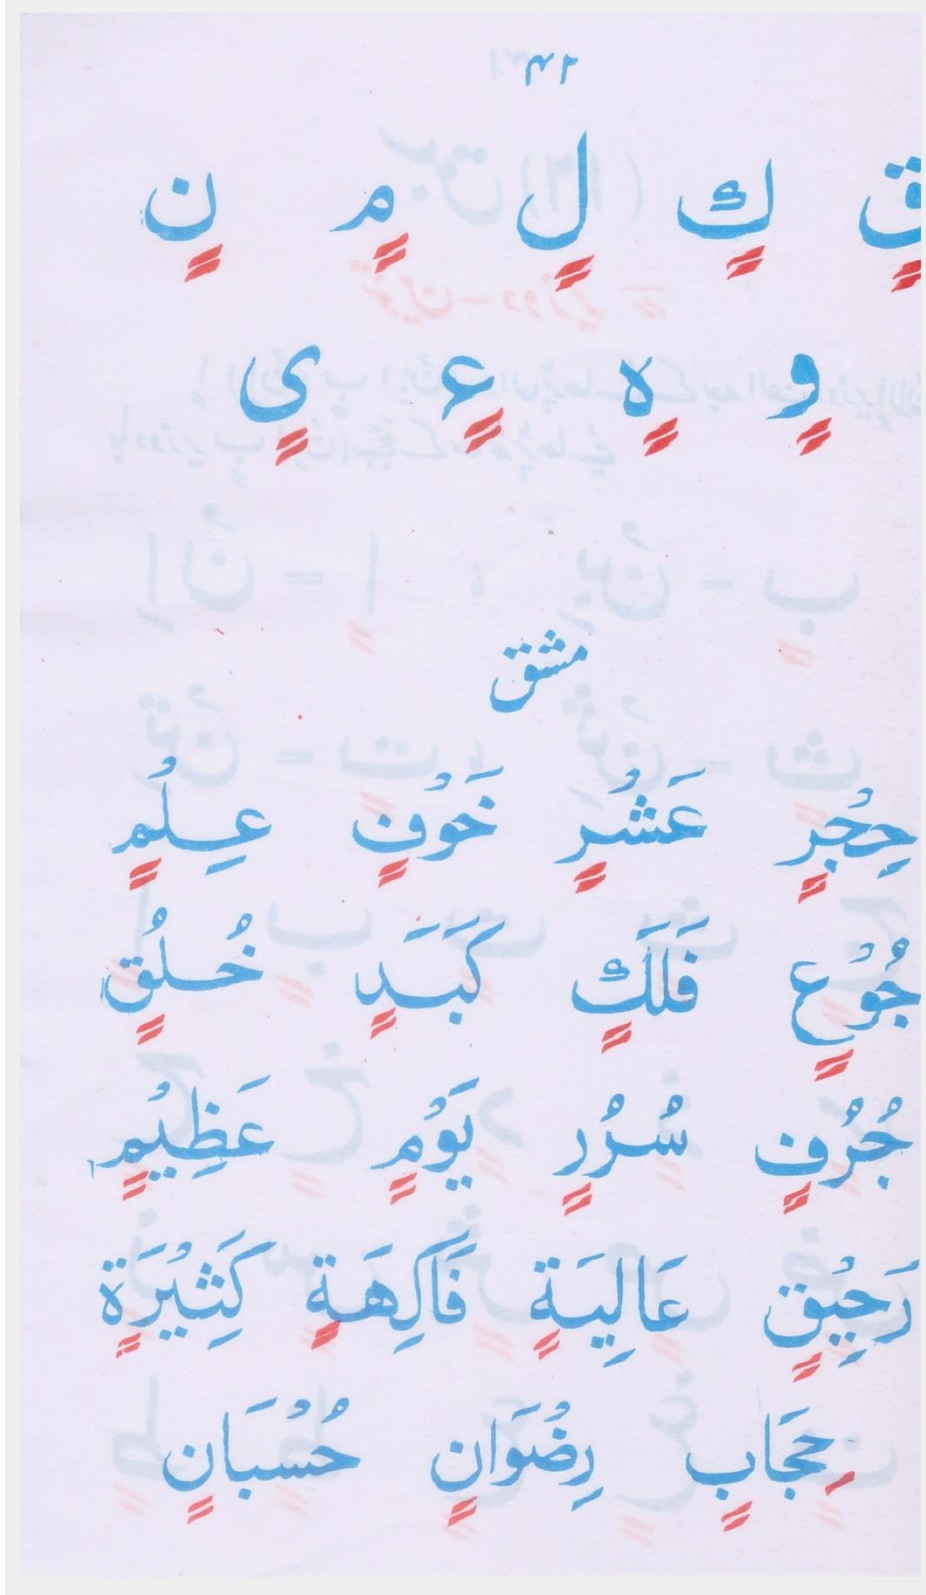 ۳۲
قٍ كٍ لٍ مٍ نٍ
وٍ هٍ ءٍ یٍ
مشق
حِجْرٍ عَشْرٍ خَوْفٍ عِلْمٍ
جُوْعٍ فَلَكٍ كَبَدٍ خُلُقٍ
جُرُفٍ سُرُرٍ يَوْمٍ عَظِيْمٍ
رَحِيْقٍ عَالِيَةٍ فَاكِهَةٍ كَثِيْرَةٍ
حِجَابٍ رِضْوَانٍ حُسْبَانٍ